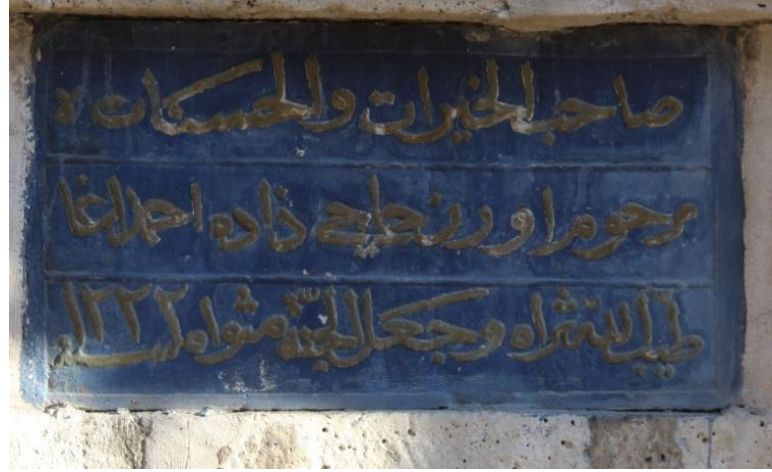 صاحب الخيرات والحسنات ه
مرحوم اورنحاجي ذاده احمد اغا
طيّب الله ثراه وجعل الجنّة مثواه سنة ١٢٢٢